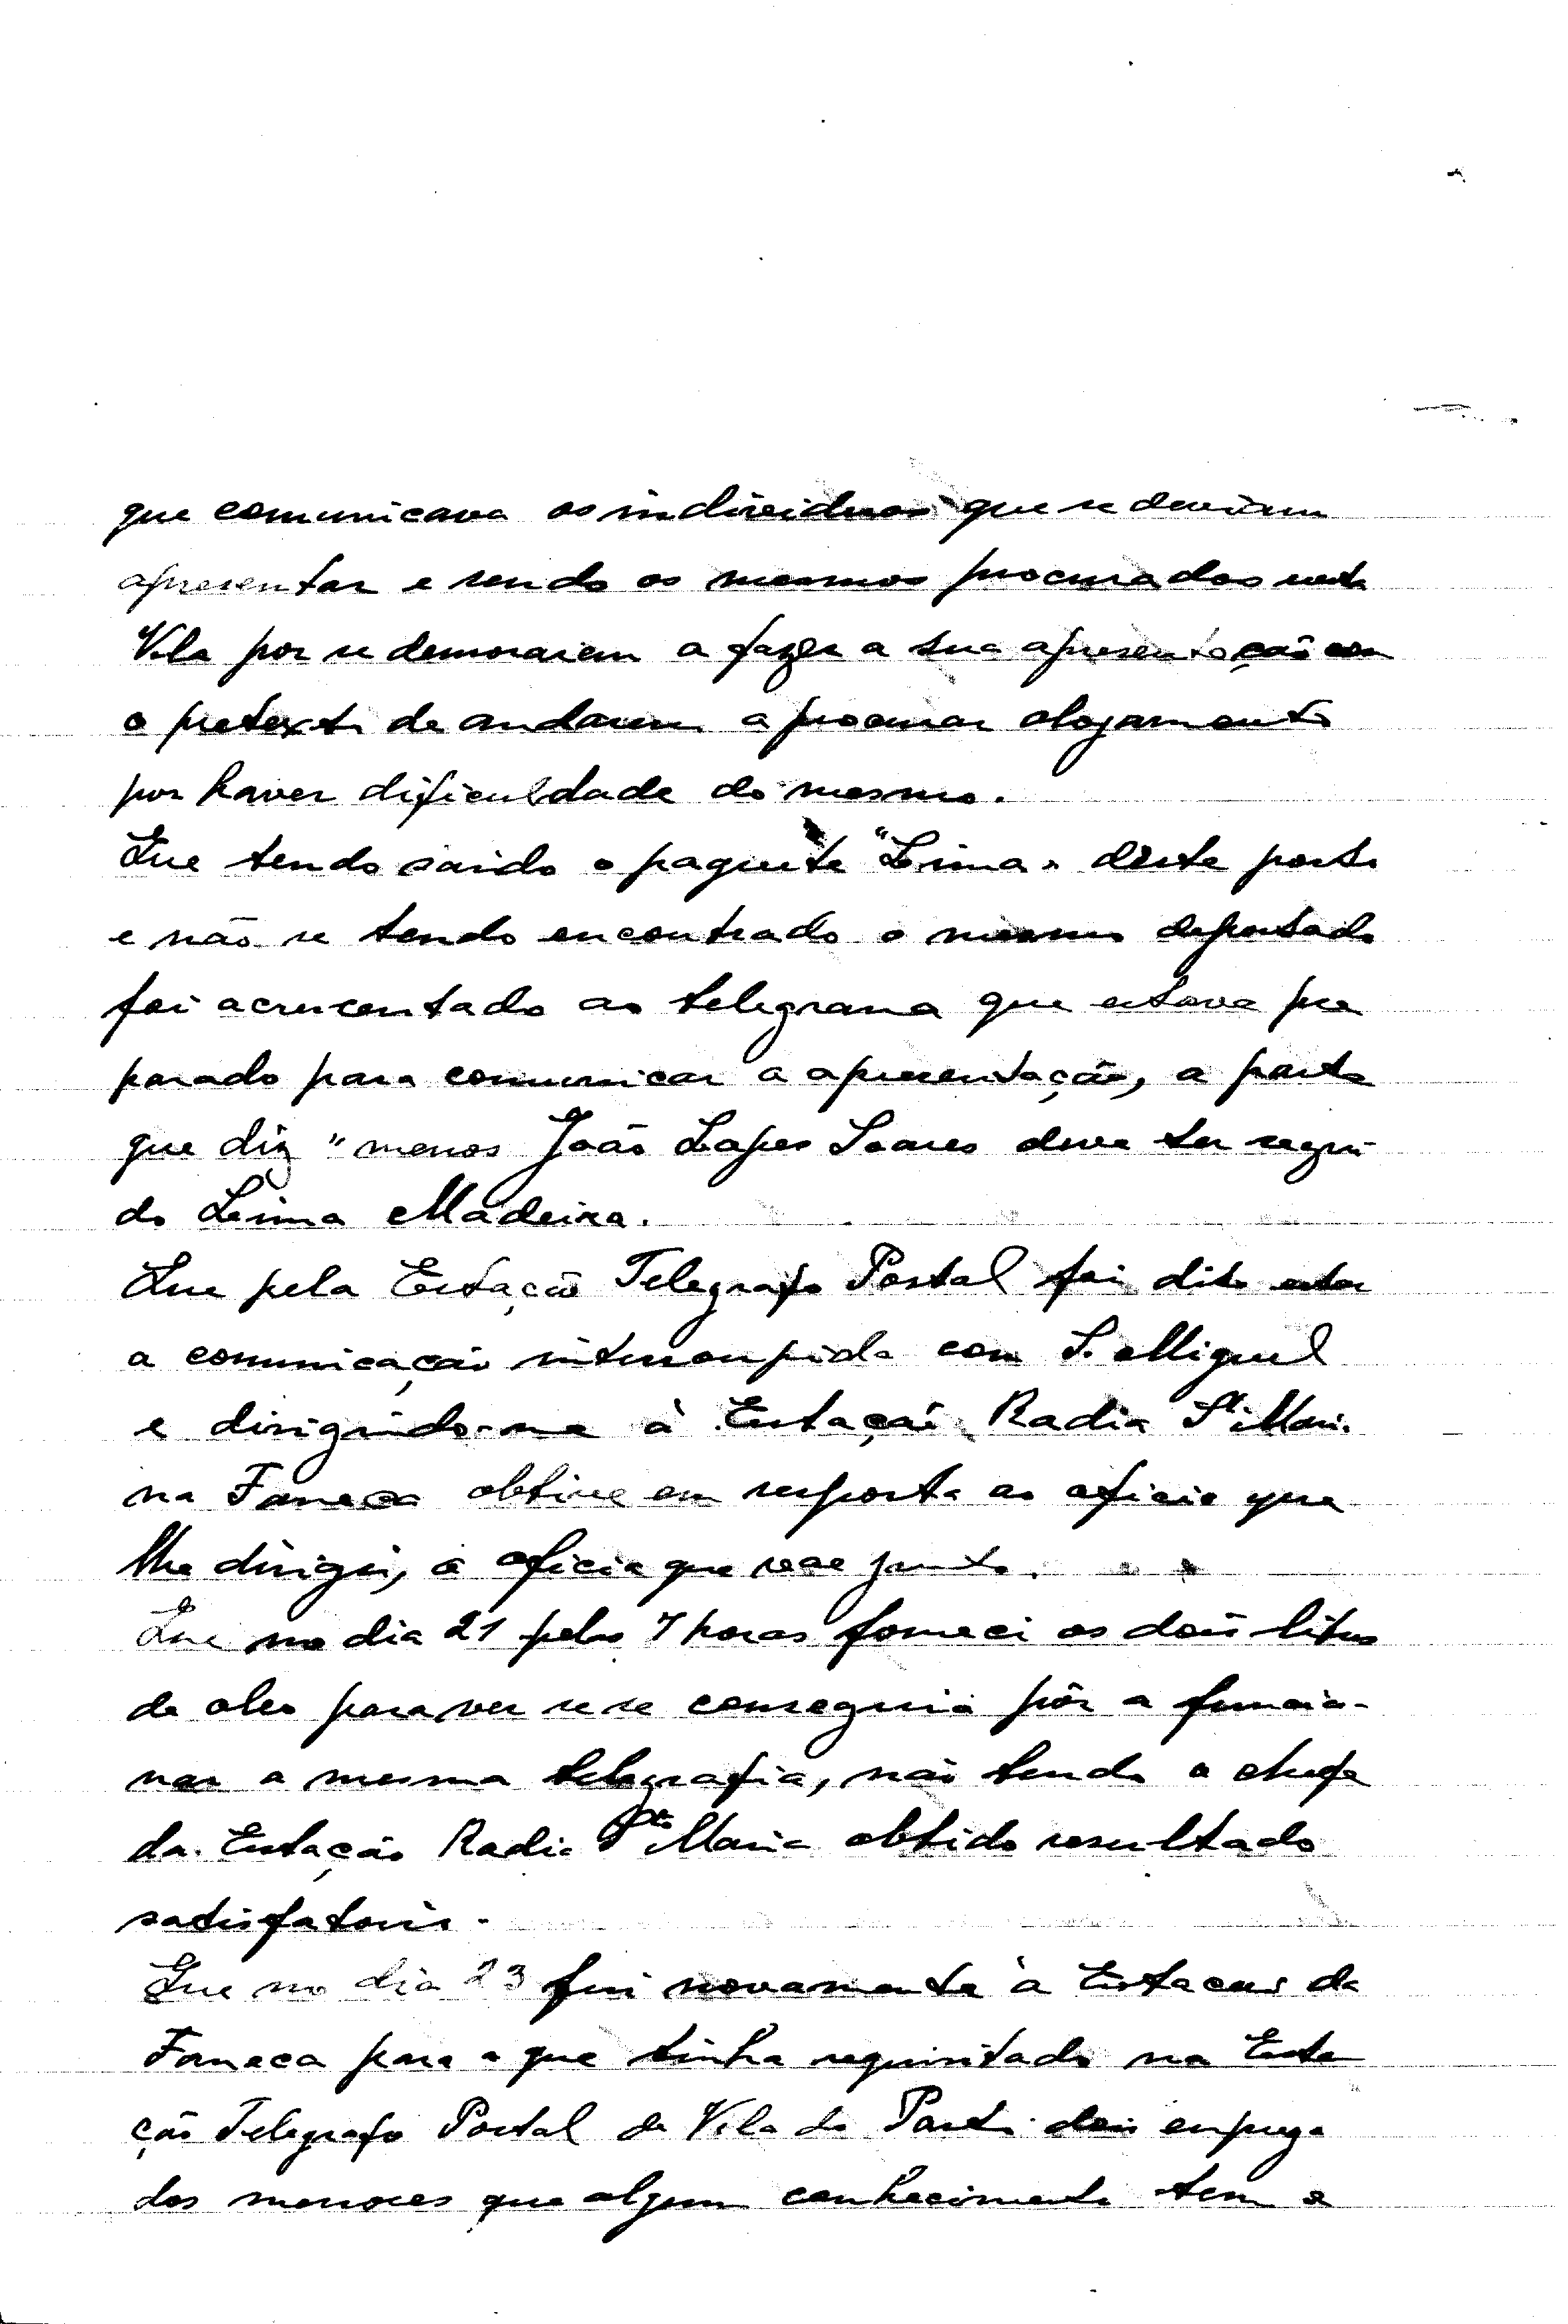 que comunicava os individuos que se deveriam
apresentar e sendo os mesmos procurados nesta
Vila por se demorarem a fazer a sua apresentação com
o pretexto de andarem a procurar alojamento
por haver dificuldade do mesmo.
Que tendo saido o paquete "Lima" deste porto
e não se tendo encontrado o mesmo deportado
foi acrescentado ao telegrama que estava pre
parado para comunicar a apresentação, a parte
que diz "menos João Lopes Soares deve ter segui-
do Lima Madeira.
Que pela Estação Telegrafo Postal foi dito estar
a comunicação interrompida com S. Miguel
e dirigindo-me à Estação Radio Sta Maria
na Faneca obtive em resposta ao oficio que
lhe dirigi, o oficio que vae junto.
Que no dia 21 pelas 7 horas forneci os dois litros
de oleo para ver se se conseguia pôr a funcio-
nar a mesma telegrafia, não tendo o chefe
da Estação Radio Sta Maria obtido resultado
satisfatorio.
Que no dia 23 fui novamente à Estacão da
Faneca para o que tinha requisitado na Esta
ção Telegrafo Postal da Vila do Porto dois empega
dos menores que algum conhecimento tem e